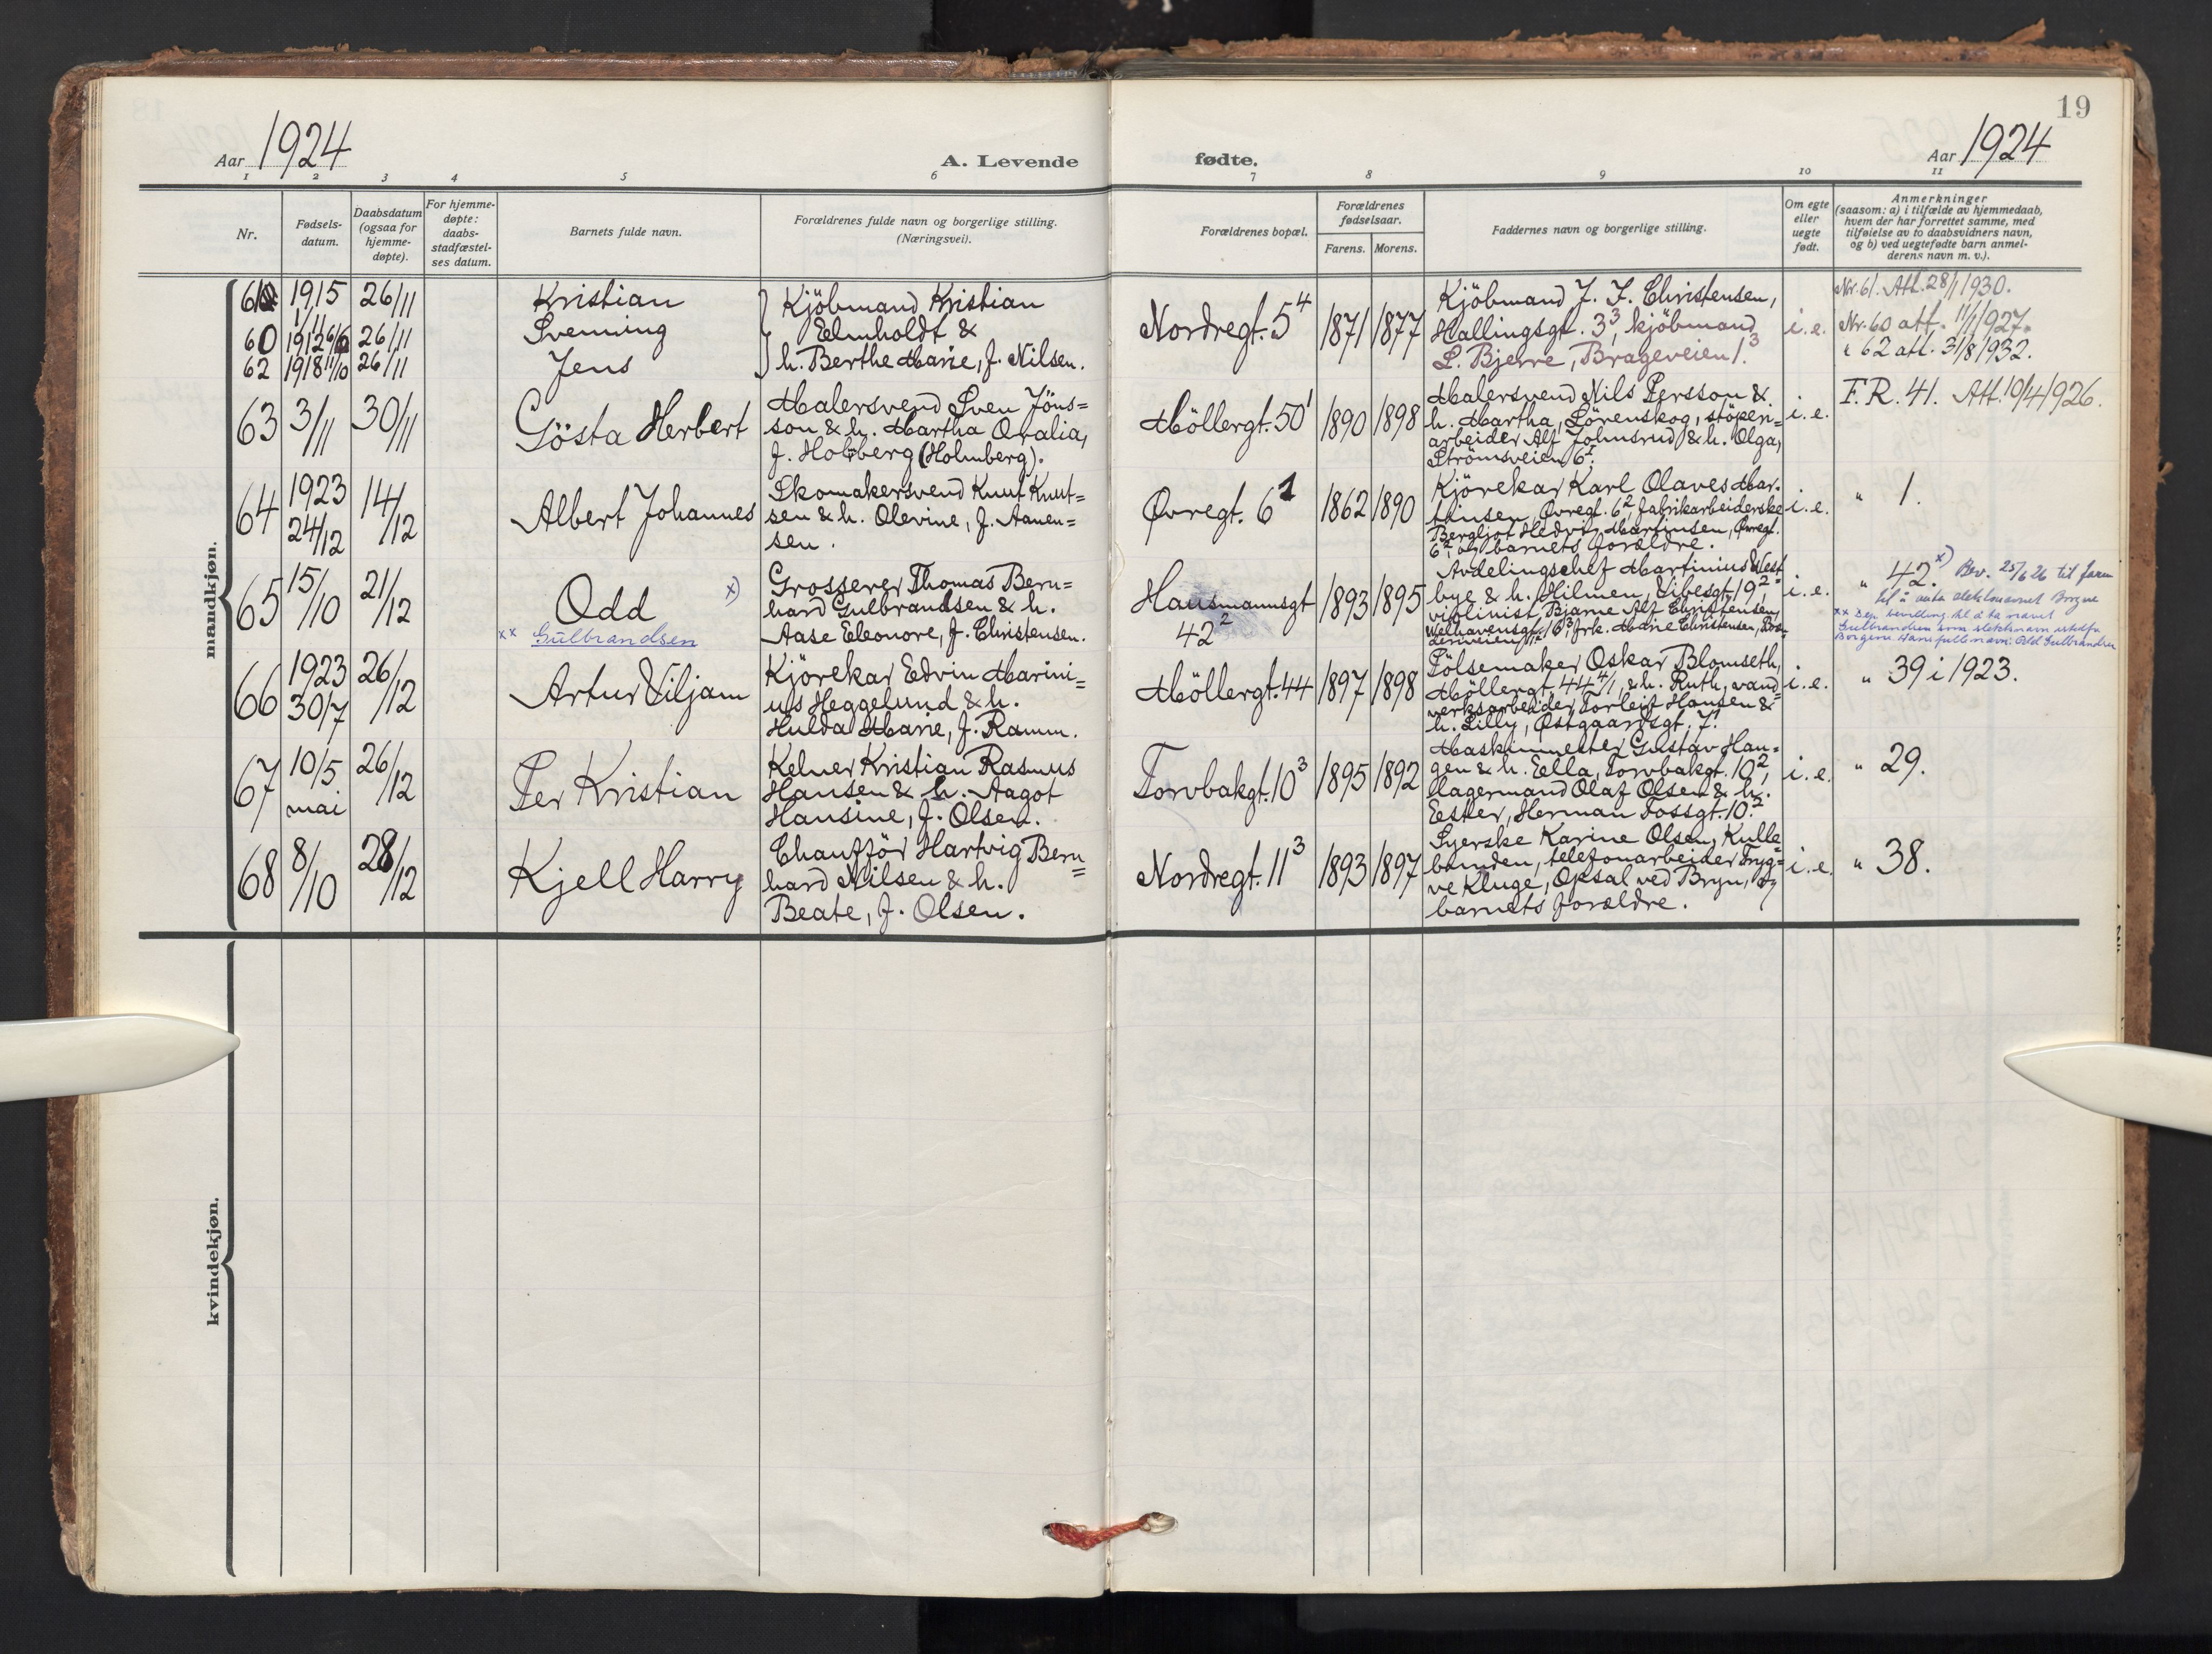 19
Aar 1924
A. Levende
fødte.
Aar 1924
1 2 3 4 5 6 7 8 9 10 11
Nr.
Fødsels-
datum.
Daabsdatum
(ogsaa for
hjemme-
døpte).
For hjemme-
døpte:
daabs-
stadfæstel-
ses datum.
Barnets fulde navn.
Forældrenes fulde navn og borgerlige stilling.
(Næringsvei).
Forældrenes bopæl.
Forældrenes
fødselsaar.
Farens. Morens.
Faddernes navn og borgerlige stilling.
Om egte
eller
uegte
født.
Anmerkninger
(saasom: a) i tilfælde av hjemmedaab,
hvem der har forrettet samme, med
tilføielse av to daabsvidners navn,
og b) ved uegtefødte barn anmel-
derens navn m. v.).
mandkjøn.
61 1915 1/11 26/11 Kristian
60 1912 26/11 Svenning
62 1918 11/10 26/11 Jens
Kjöbmand Kristian
Elmholdt &
h. Berthe Marie, f. Nilsen.
Nordregt. 5⁴
1871 1877
Kjöbmand J. F. Christensen,
Hallingsgt. 3³, kjöbmand
L. Bjerre, Brageveien 1.³
i. e.
Nr. 61. Att. 28/1 1930.
Nr. 60 att. 11/1 1927.
" 62 att. 31/8 1932.
63 3/11 30/11
Gösta Herbert
Malersvend Sven Jöns=
son & h. Martha Oralia,
f. Holberg (Holmberg).
Möllergt. 50¹
1890 1898
Malersvend Nils Persson &
h. Martha, Lörenskog, stöperi=
arbeider Alf Johnsrud & h. Olga,
Strömsveien 6
i. e.
F. R. 41. Att. 10/4 1926.
64 1923 24/12 14/12
Albert Johannes
Skomakersvend Knut Knut=
sen & h. Olevine, f. Aanen=
sen.
Øvregt. 6¹
1862 1890
Kjörekar Karl Olaves Mar=
tinsen, Øvregt. 6², fabrikarbeiderske
Bergljot Hedvig Martinsen, Øvregt.
6², og barnets forældre.
i. e.
" 1.
65 15/10 21/12
Odd x)
xx Gulbrandsen
Grosserer Thomas Bern=
hard Gulbrandsen & h.
Aase Eleonore, f. Christensen.
Hausmannsgt
42²
1893 1895
Avdelingschef Martinius West=
bye & h. Hilmen, Vibesgt. 19²,
violinist Bjarne Alf Christensen,
Welhavensgt. 16³, frk. Marie Christensen,
i. e.
" 42. x) Bev. 25/6 26 til faren
til å anta slektsnavnet Borgne
xx Den bevilling til å ta navnet
Gulbrandsen som slektsnavn istedfor
Borgene. Hans fulle navn: Odd Gulbrandsen
66 1923 30/7 26/12
Artur Viljam
Kjörekar Edvin Marini=
us Heggelund & h.
Hulda Marie, f. Ramm.
Möllergt. 44
1897 1898
Pölsemaker Oskar Blomseth,
Möllergt. 44 4/1, & h. Ruth, vand=
verksarbeider Torleif Hansen &
h. Lilly, Østgaardsgt. 7.¹
i. e.
" 39 i 1923.
67 10/5 mai 26/12
Per Kristian
Kelner Kristian Rasmus
Hansen & h. Aagot
Hansine, f. Olsen.
Torvbakgt. 10³
1895 1892
Maskinmester Gustav Hau=
gen & h. Ella, Torvbakgt. 10²,
lagermand Olaf Olsen & h.
Ester, Herman Fossgt. 10.²
i. e.
" 29.
68 8/10 28/12
Kjell Harry
Chaufför Hartvig Bern=
hard Nilsen & h.
Beate, f. Olsen.
Nordregt. 11³
1893 1897
Syerske Karine Olsen, Kulle=
bunden, telefonarbeider Tryg=
ve Kluge, Opsal ved Bryn, og
barnets forældre.
i. e.
" 38.
kvindekjøn.